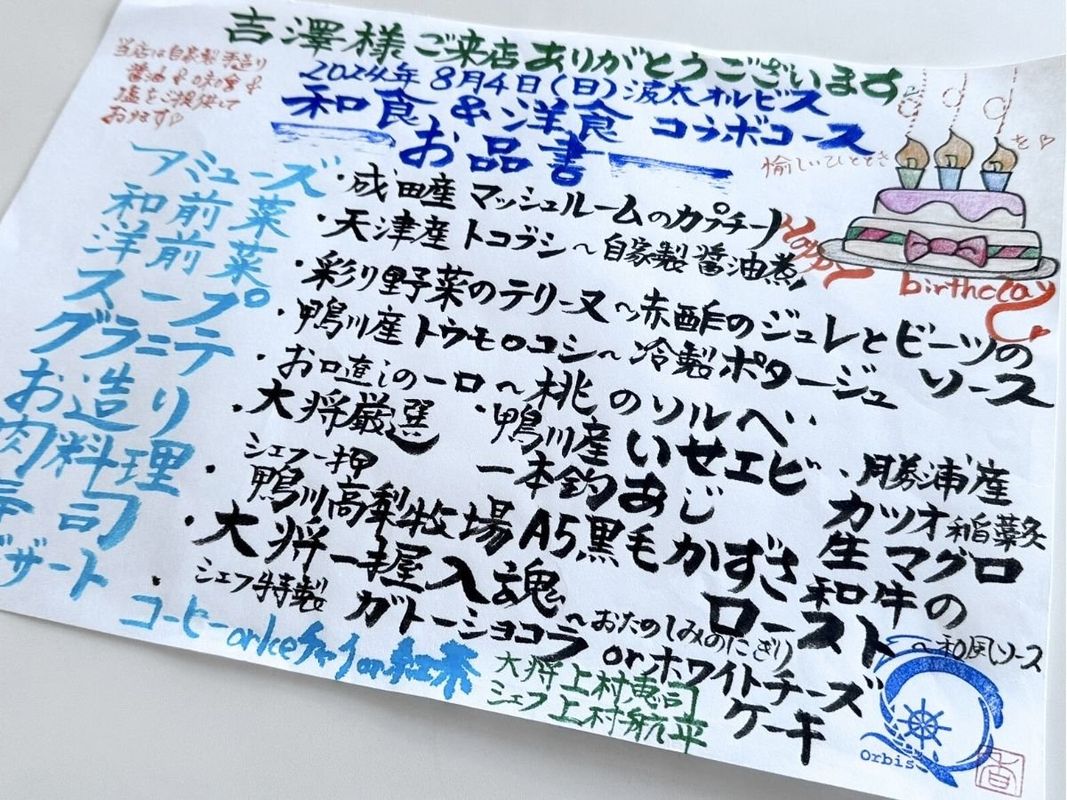 吉澤様ご来店ありがとうございます
当店は自家製手造り
醤油&ぽん酢&
塩をご提供して
おります♡
2024年8月4日(日)波太オルビス
和食&洋食 コラボコース
お品書
愉しいひとときを♡
Happy
birthday
アミューズ ・成田産 マッシュルームのカプチーノ
和前菜 ・天津産 トコブシ〜自家製醤油煮
洋前菜 ・彩り野菜のテリーヌ〜赤酢のジュレとビーツの
ソース
スープ ・鴨川産 トウモロコシ〜冷製ポタージュ
グラニテ ・お口直しの一口〜桃のソルベ
お造り ・大将厳選 ・鴨川産 いせエビ ・勝浦産
一本釣あじ カツオ稲藁炙
生マグロ
肉料理 ・シェフ一押
鴨川高梨牧場A5黒毛かずさ和牛の
ロースト〜和風ソース
寿司 ・大将一握入魂〜おたのしみのにぎり
デザート ・シェフ特製 ガトーショコラorホワイトチーズ
ケーキ
コーヒーorIceチャイor紅茶
大将 上村恵司
シェフ 上村航平
Orbis